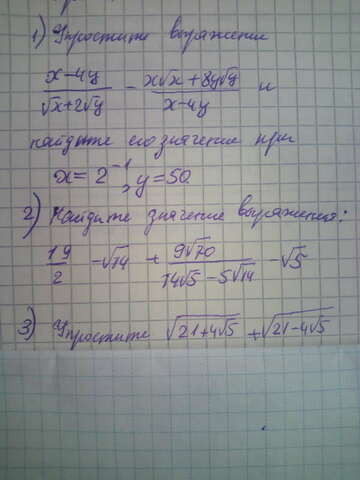 1) Упростите выражение
x-4y/√x+2√y - x√x+8y√y/x-4y и
найдите его значение при
x=2⁻¹, y=50
2) Найдите значение выражения:
19/2 -√14 + 9√70/14√5-5√14 -√5
3) Упростите √21+4√5 +√21-4√5